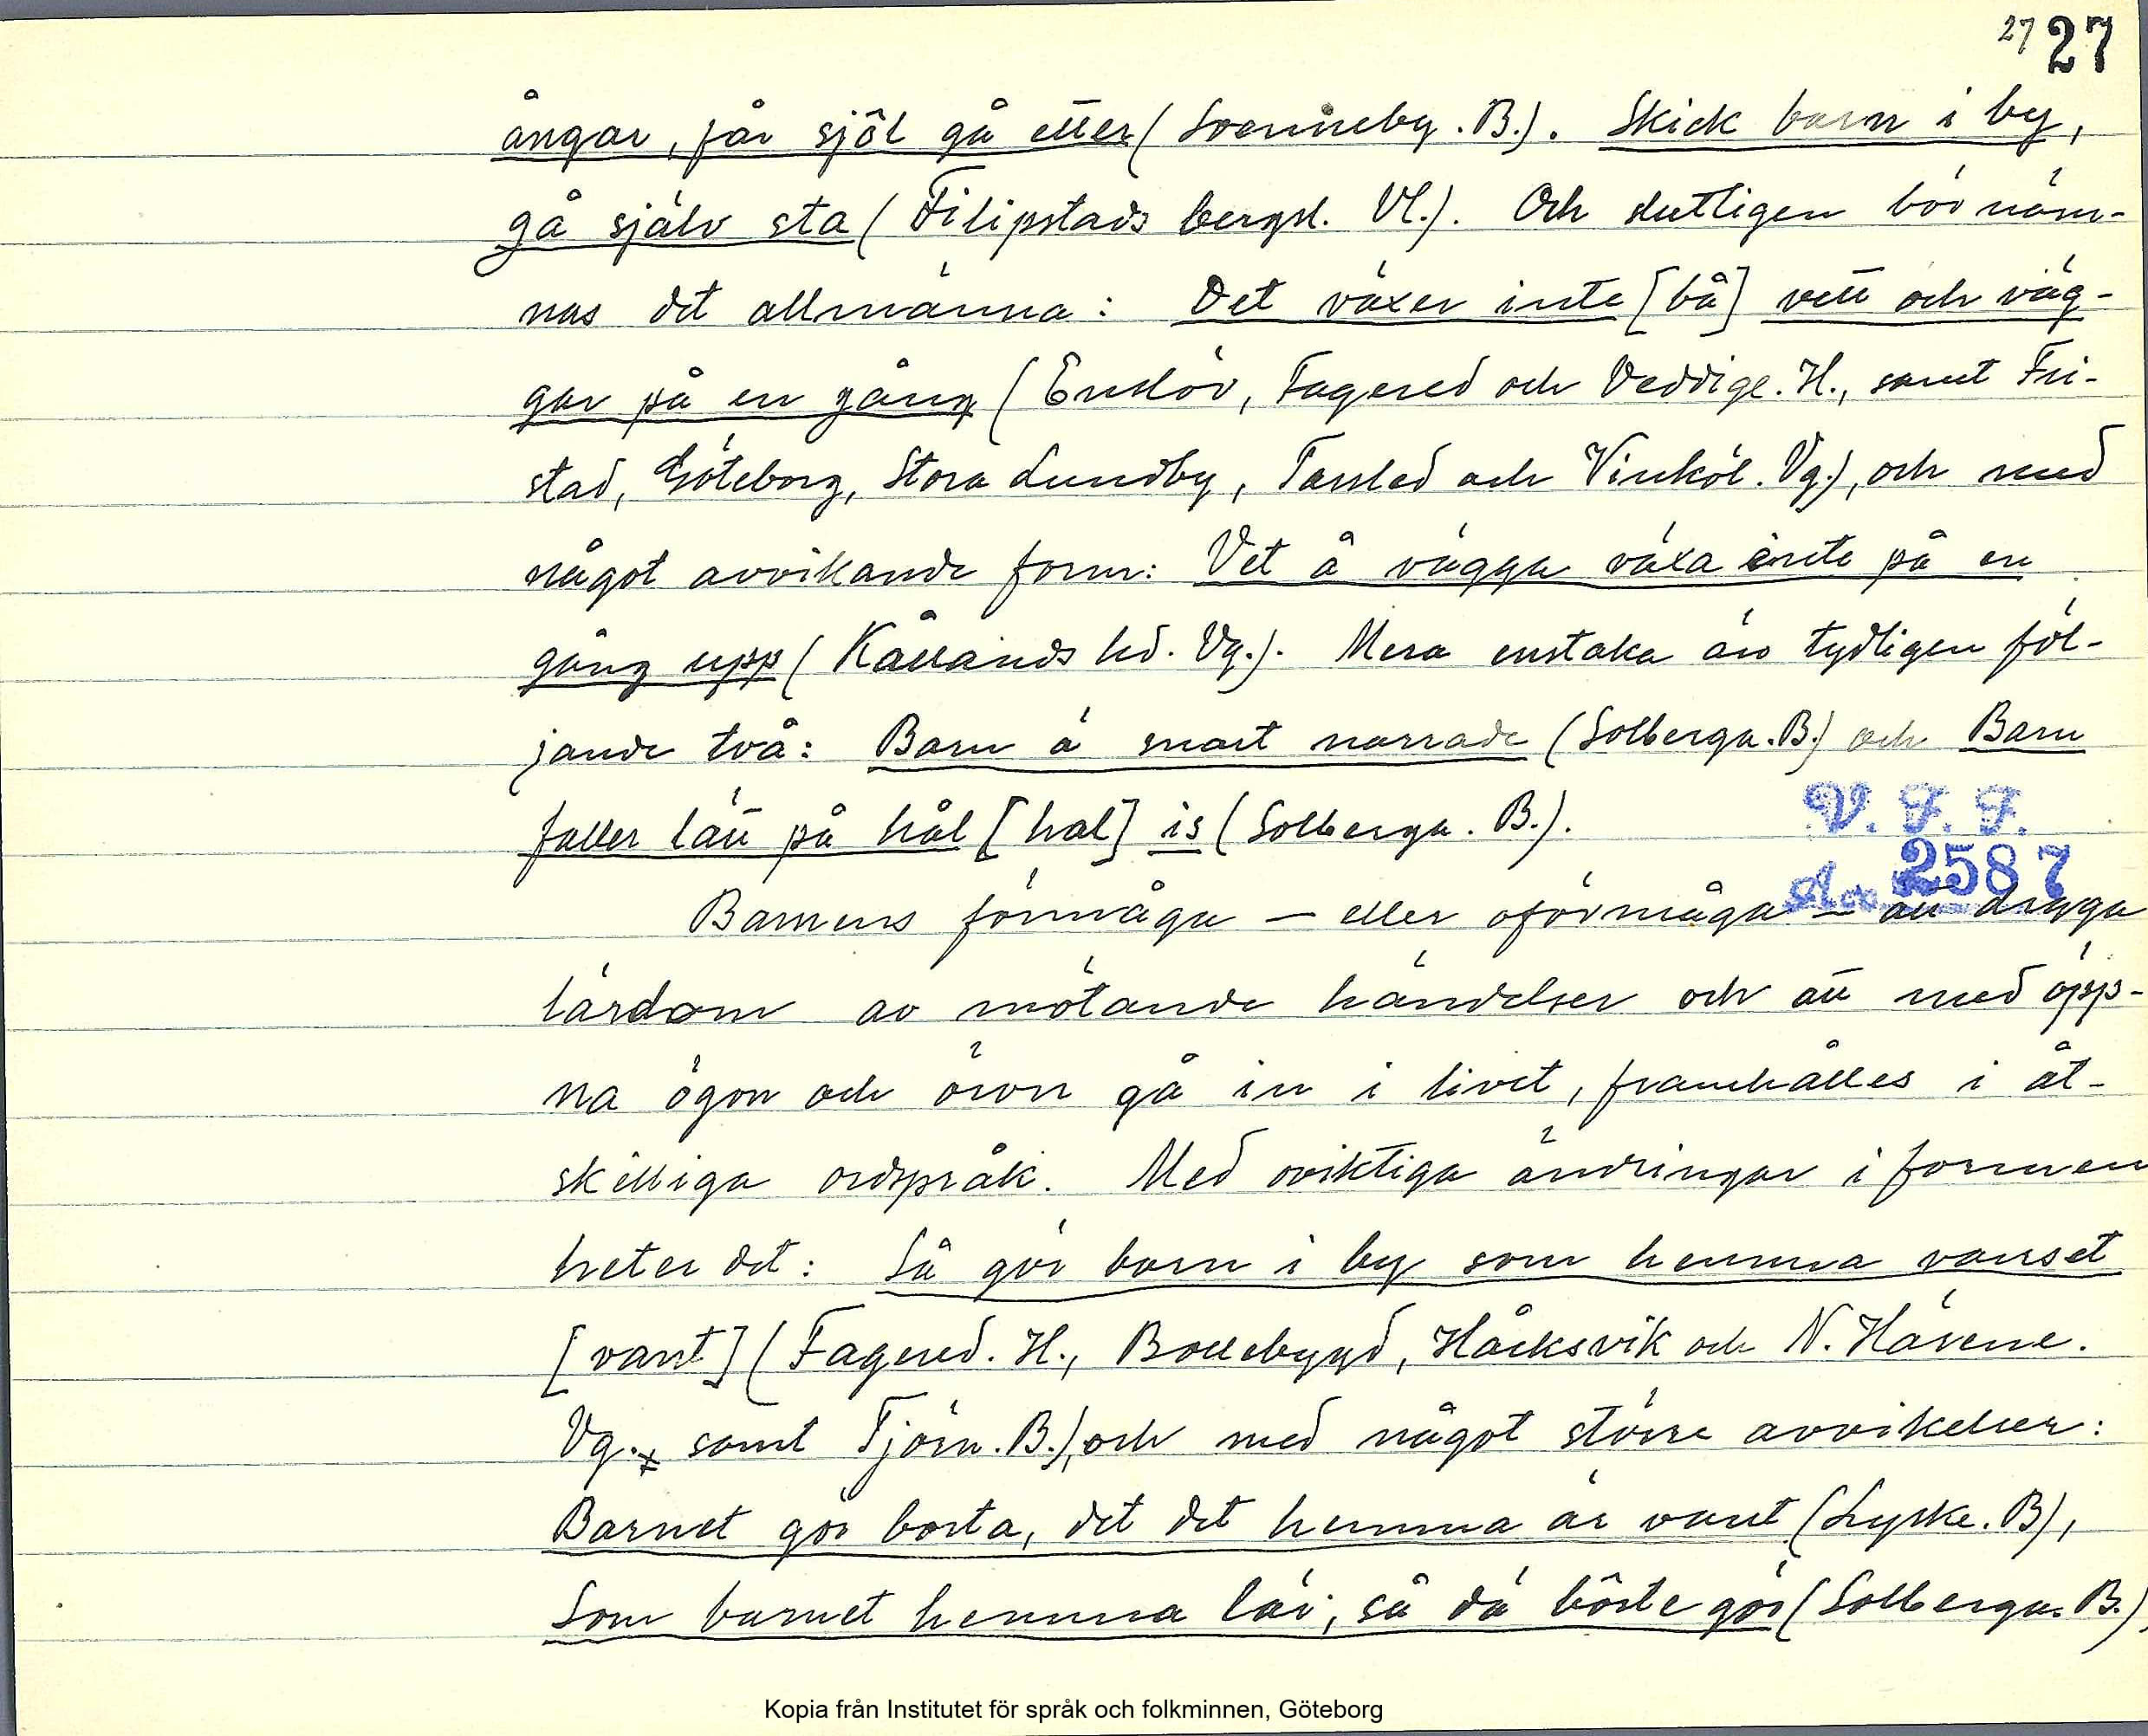 27 27
ångar, får sjöl gå etter (Svenneby. B.). Skick barn i by,
gå själv sta (Filipstads bergsl. Vl.). Och slutligen bör näm-
nas det allmänna: Det växer inte [bå] vett och väg-
gar på en gång (Enslöv, Fagered och Veddige. H., samt Fri-
stad, Göteborg, Stora Lundby, Tarsled och Vinköl. Vg.), och med
något avvikande form: Vet å vägga växa inte på en
gång upp (Kållands hd. Vg.). Mera enstaka äro tydligen föl-
jande två: Barn ä snart narrade (Solberga. B.) och Barn
faller lätt på hål [hal] is (Solberga. B.).
V. F. F.
Acc. 2587
Barnens förmåga – eller oförmåga – att draga
lärdom av mötande händelser och att med öpp-
na ögon och öron gå in i livet, framhålles i åt-
skilliga ordspråk. Med oviktiga ändringar i formen
heter det: Så gör barn i by som hemma vanset
[vant] (Fagered. H., Bollebygd, Håcksvik och N. Härene.
Vg. samt Tjörn. B.), och med något större avvikelser:
Barnet gör borta, det det hemma är vant (Lyse. B),
Som barnet hemma lär, så dä börte gör (Solberga. B.),
Kopia från Institutet för språk och folkminnen, Göteborg